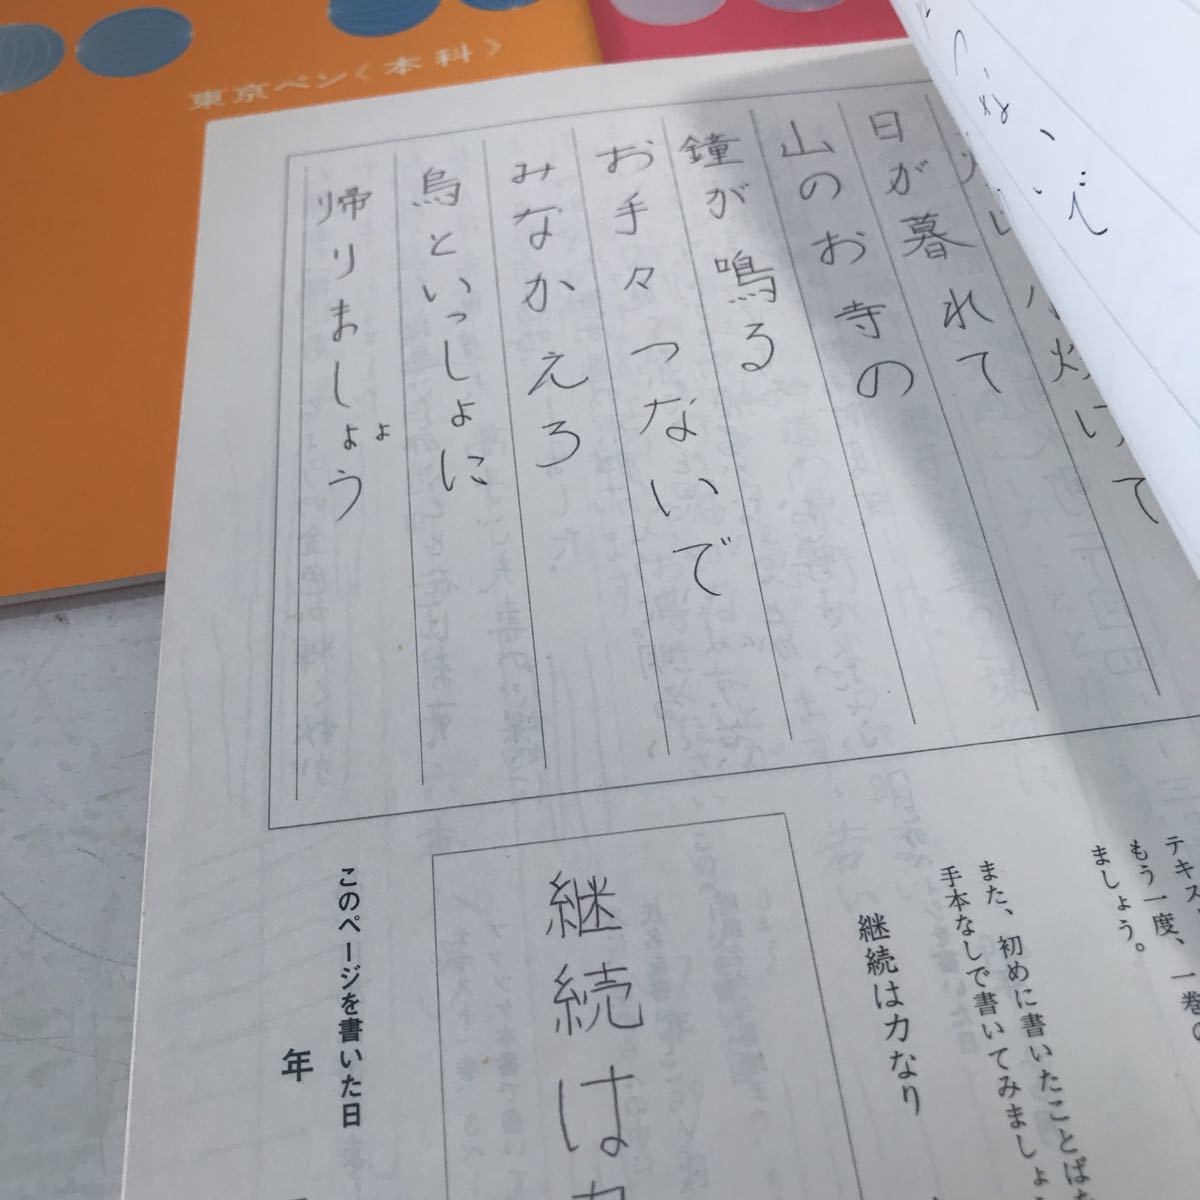 東京ペン〈本科〉
小焼けて
日が暮れて
山のお寺の
鐘が鳴る
お手々つないで
みなかえろ
烏といっしょに
帰りましょう
ょ
テキス
もう一度、一巻
ましょう。
また、初めに書いたことば
手本なしで書いてみましょ
継続は力なり
継続は
このページを書いた日
年